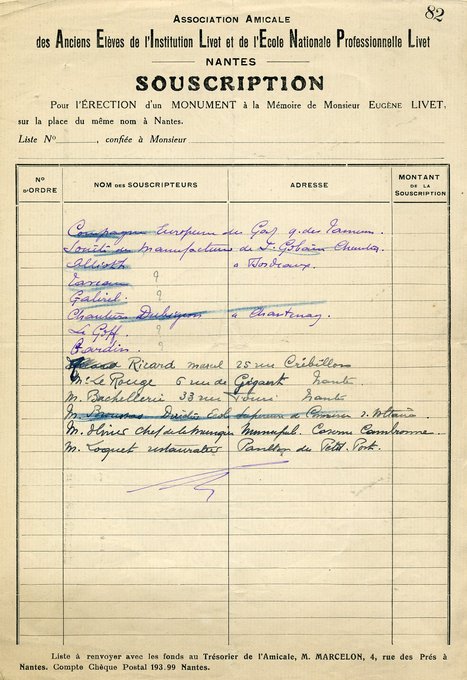 82
ASSOCIATION AMICALE
des ANCIENS ELÈVES DE L'INSTITUTION LIVET ET DE L'ECOLE NATIONALE PROFESSIONNELLE LIVET
NANTES
SOUSCRIPTION
Pour l'ÉRECTION d'un MONUMENT à la Mémoire de Monsieur EUGÈNE LIVET,
sur la place du même nom à Nantes.
Liste No , confiée à Monsieur
No D'ORDRE NOM DES SOUSCRIPTEURS ADRESSE MONTANT DE LA SOUSCRIPTION
Compagnie Européenne des Gaz q. des Tanneurs.
Société des Manufactures de St Gobain Chantenay
à Bordeaux.
?
Gabriel. ?
Chantiers Dubigeon à Chantenay
Le Goff ?
Bardin. ?
Ricard Marcel 25 rue Crébillon
Mr Le Rouge 5 rue de Gigant Nantes
M. Bachellerie 33 rue Nantes
M. Ecole Supérieure de Commerce
M. Olivier Chef de la Musique Municipal. Caserne Cambronne.
M. Loquet restaurateur Pavillon du Petit Port.
Liste à renvoyer avec les fonds au Trésorier de l'Amicale, M. MARCELON, 4, rue des Prés à
Nantes. Compte Chèque Postal 193.99 Nantes.